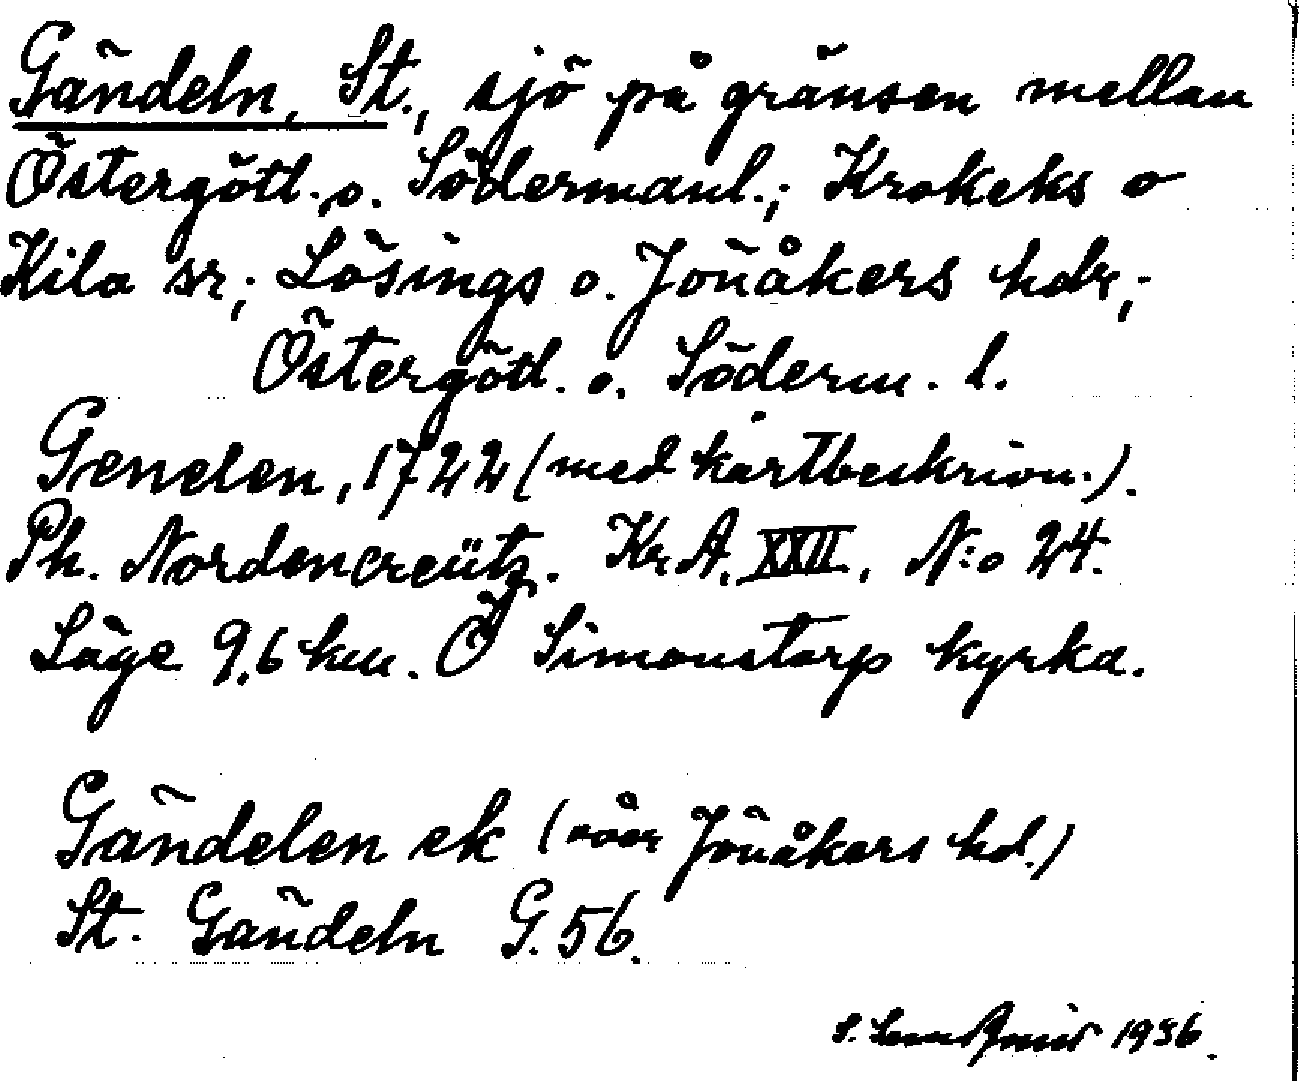 Gändeln, St., sjö på gränsen mellan
Östergötl. o. Södermanl.; Krokeks o
Kila sr; Lösings o. Jönåkers hdr;
Östergötl. o. Söderm. l.
Gendlen, 1722 (med kartbeskrivn.).
Ph. Nordencreütz. Kr. A. XXII. N:o 24.
Läge 9,6 km. Ö Simonstorp kyrka.
Gändelen ek (över Jönåkers hd.)
St. Gändeln G. 56.
S. 1936.